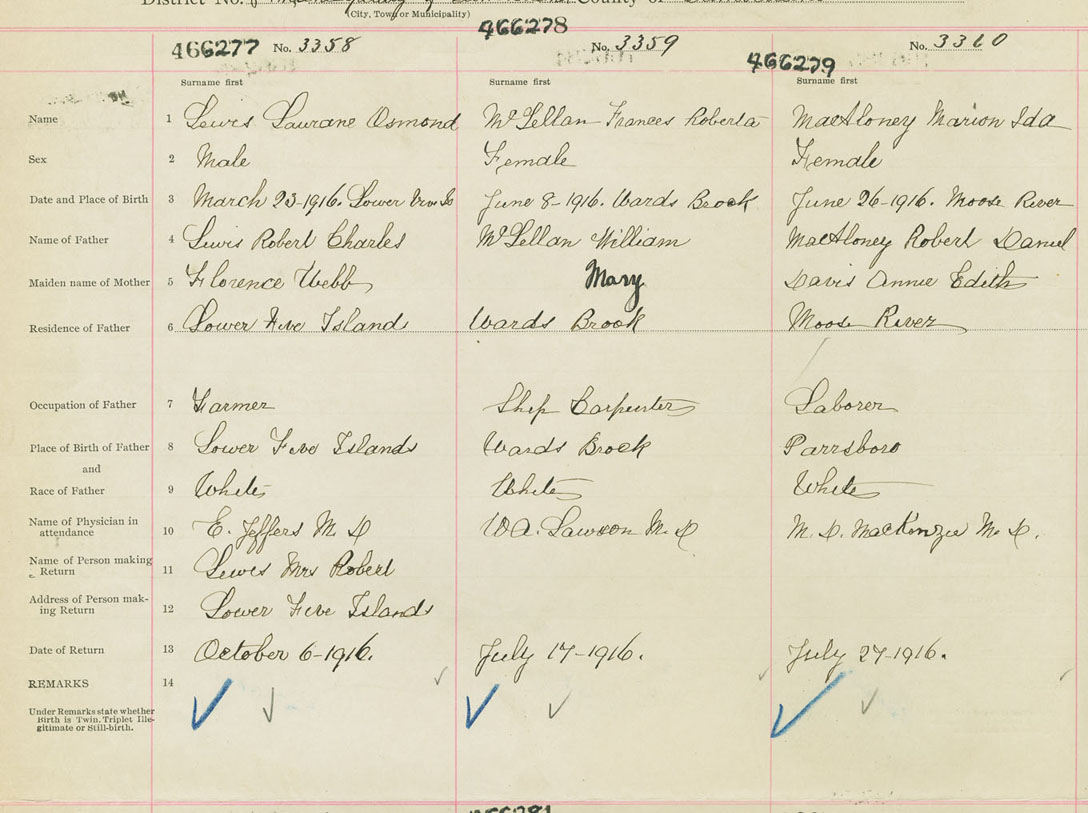 District No. County of
(City, Town or Municipality)
466277 No. 3358 466278 No. 3359 466279 No. 3360
Surname first Surname first Surname first
Name 1 Lewis Laurane Osmond McLellan Frances Roberta MacAloney Marion Ida
Sex 2 Male Female Female
Date and Place of Birth 3 March 23-1916. Lower Five Is June 8-1916. Wards Brook June 26-1916. Moose River
Name of Father 4 Lewis Robert Charles McLellan William MacAloney Robert Daniel
Maiden name of Mother 5 Florence Webb Mary Davis Annie Edith
Residence of Father 6 Lower Five Islands Wards Brook Moose River
Occupation of Father 7 Farmer Ship Carpenter Laborer
Place of Birth of Father 8 Lower Five Islands Wards Brook Parrsboro
and
Race of Father 9 White White White
Name of Physician in
attendance 10 E. Jeffers M. D W A. Lawson M. D M. D. MacKenzie M. D.
Name of Person making
Return 11 Lewis Mrs Robert
Address of Person mak-
ing Return 12 Lower Five Islands
Date of Return 13 October 6-1916. July 17-1916. July 27-1916.
REMARKS 14
Under Remarks state whether
Birth is Twin, Triplet Ille-
gitimate or Still-birth.
466281